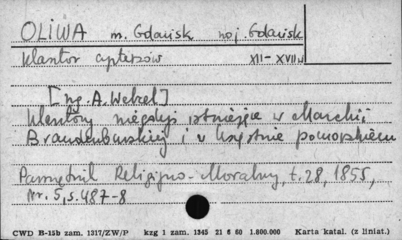 OLIWA m. Gdańsk woj. Gdańsk
klasztor cystersów XII-XVII w
[Ing. A. Wetzel]
Klasztory niegdyś istniejące w Marchii
Brandenburskiej i w Księstwie pomorskiem
Pamiętnik Religijno-Moralny, t. 28, 1855,
Nr. 5, s. 487-8
CWD B-15b zam. 1317/ZW/P kzg 1 zam. 1345 21 6 60 1.800.000 Karta katal. (z liniat.)